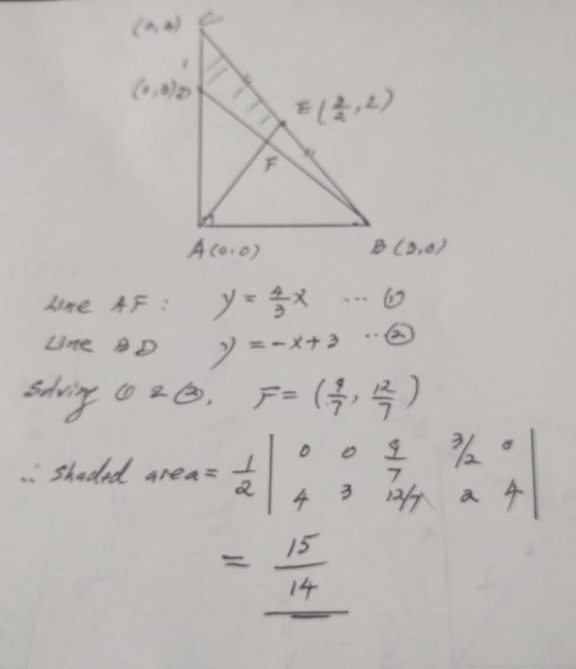 C
(0,4)
1
(0,3)D
E(3/2, 2)
F
A(0,0)
B(3,0)
Line AF : y = 4/3 x ... ①
Line BD y = -x+3 ..②
Solving ① & ②, F = (9/7, 12/7)
∴ Shaded area = 1/2 | 0 0 9/7 3/2 0
4 3 12/7 2 4 |
= 15/14